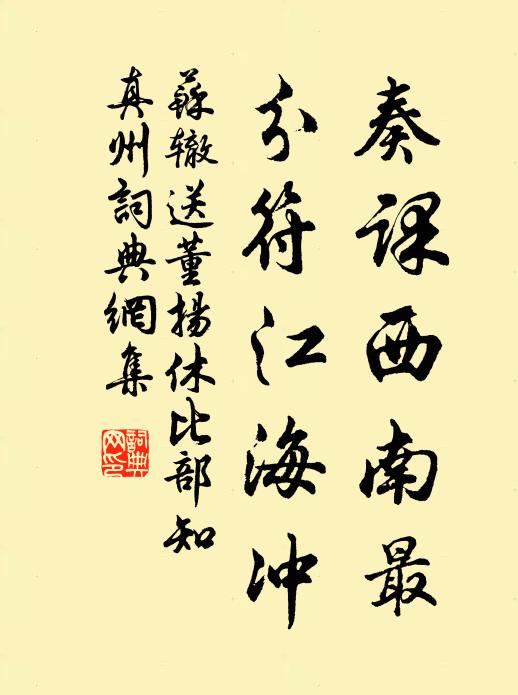 奏课西南最
分符江海冲
蘇辙送董揚休比部知
真州詞典網集
詞典网印